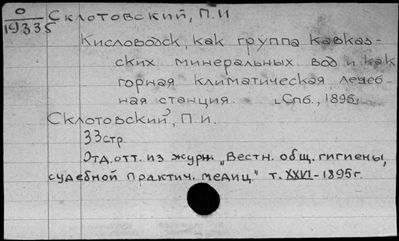 О
19335
Склотовский, П.И
Кисловодск, как группа кавказ-
ских минеральных вод и как
горная климатическая лечеб-
ная станция. [Спб., 1895]
Склотовский, П.И.
33стр.
Отд.отт. из журн „Вестн. общ. гигиены,
судебной практич. медиц." т. XXVI-1895г.